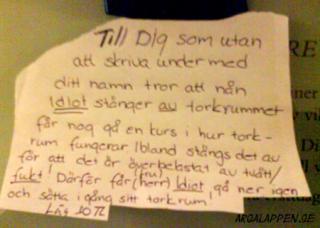 Till Dig som utan
att skriva under med
ditt namn tror att nån
Idiot stänger av torkrummet
får nog gå en kurs i hur tork-
rum fungerar Ibland stängs det av
för att det är överbelastat av tvätt/
fukt! Därför får (fru)
(herr) Idiot, gå ner igen
och sätta igång sitt torkrum!
ARGALAPPEN.SE